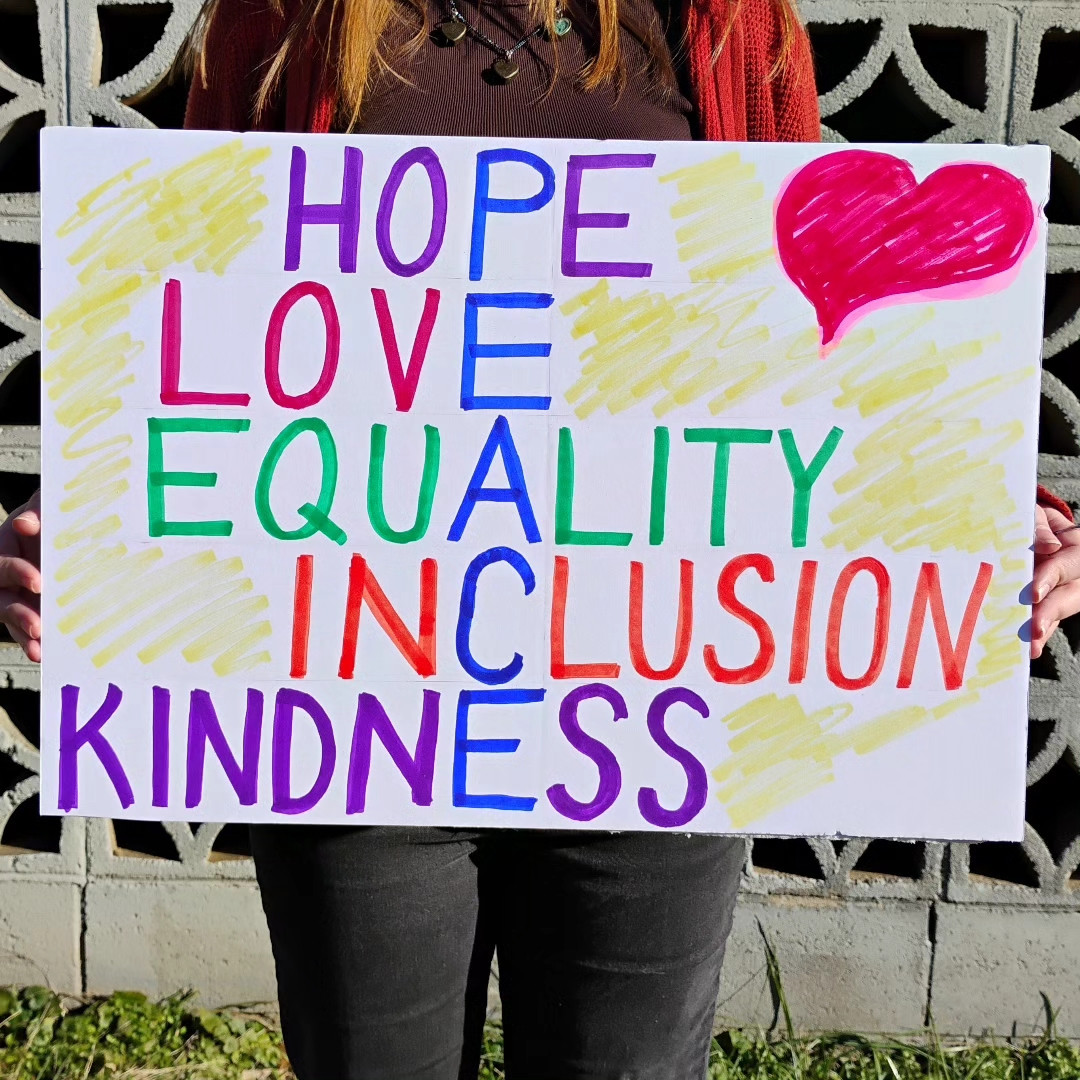 HOPE
LOVE
EQUALITY
INCLUSION
KINDNESS